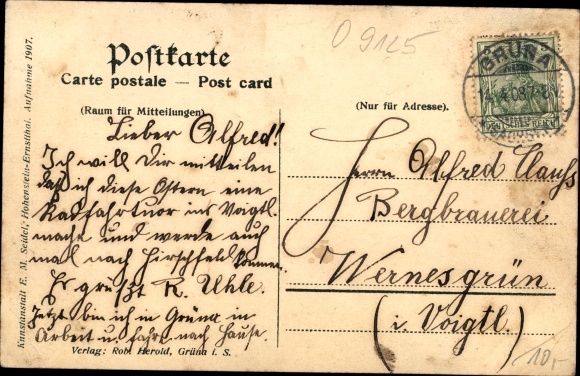 O 9125
Postkarte
Carte postale — Post card
(Raum für Mitteilungen)
(Nur für Adresse).
GRÜNA
4.08.7-8V
Lieber Alfred!
Ich will Dir mitteilen
daß ich diese Ostern eine
Radfahrtuor ins Voigtl.
mache und werde auch
mal nach Hirschfeld kommen.
Es grüßt R. Uhle.
Jetzt bin ich in Grüna in
Arbeit u. fahre nach Hause.
Herrn Alfred Clauß
Bergbrauerei
Wernesgrün
(i. Voigtl.)
10,-
Verlag: Rob. Herold, Grüna i. S.
Kunstanstalt E. M. Seidel, Hohenstein-Ernstthal. Aufnahme 1907.